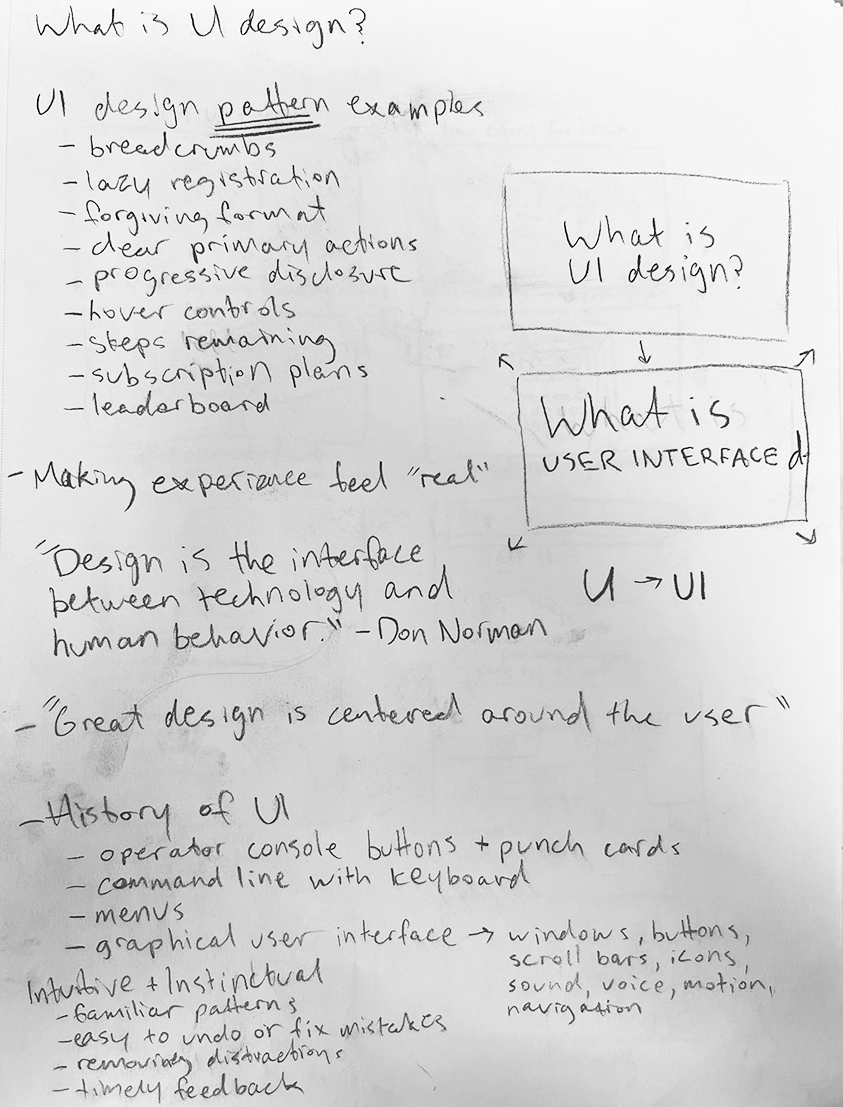 What is UI design?
UI design pattern examples
- breadcrumbs
- lazy registration
- forgiving format
- clear primary actions
- progressive disclosure
- hover controls
- steps remaining
- subscription plans
- leaderboard
What is
UI design?
↓
What is
USER INTERFACE d
- Making experience feel "real"
"Design is the interface
between technology and
human behavior." - Don Norman
U → UI
- "Great design is centered around the user"
- History of UI
- operator console buttons + punch cards
- command line with keyboard
- menus
- graphical user interface → windows, buttons,
scroll bars, icons,
sound, voice, motion,
navigation
Intuitive + Instinctual
- familiar patterns
- easy to undo or fix mistakes
- removing distractions
- timely feedback